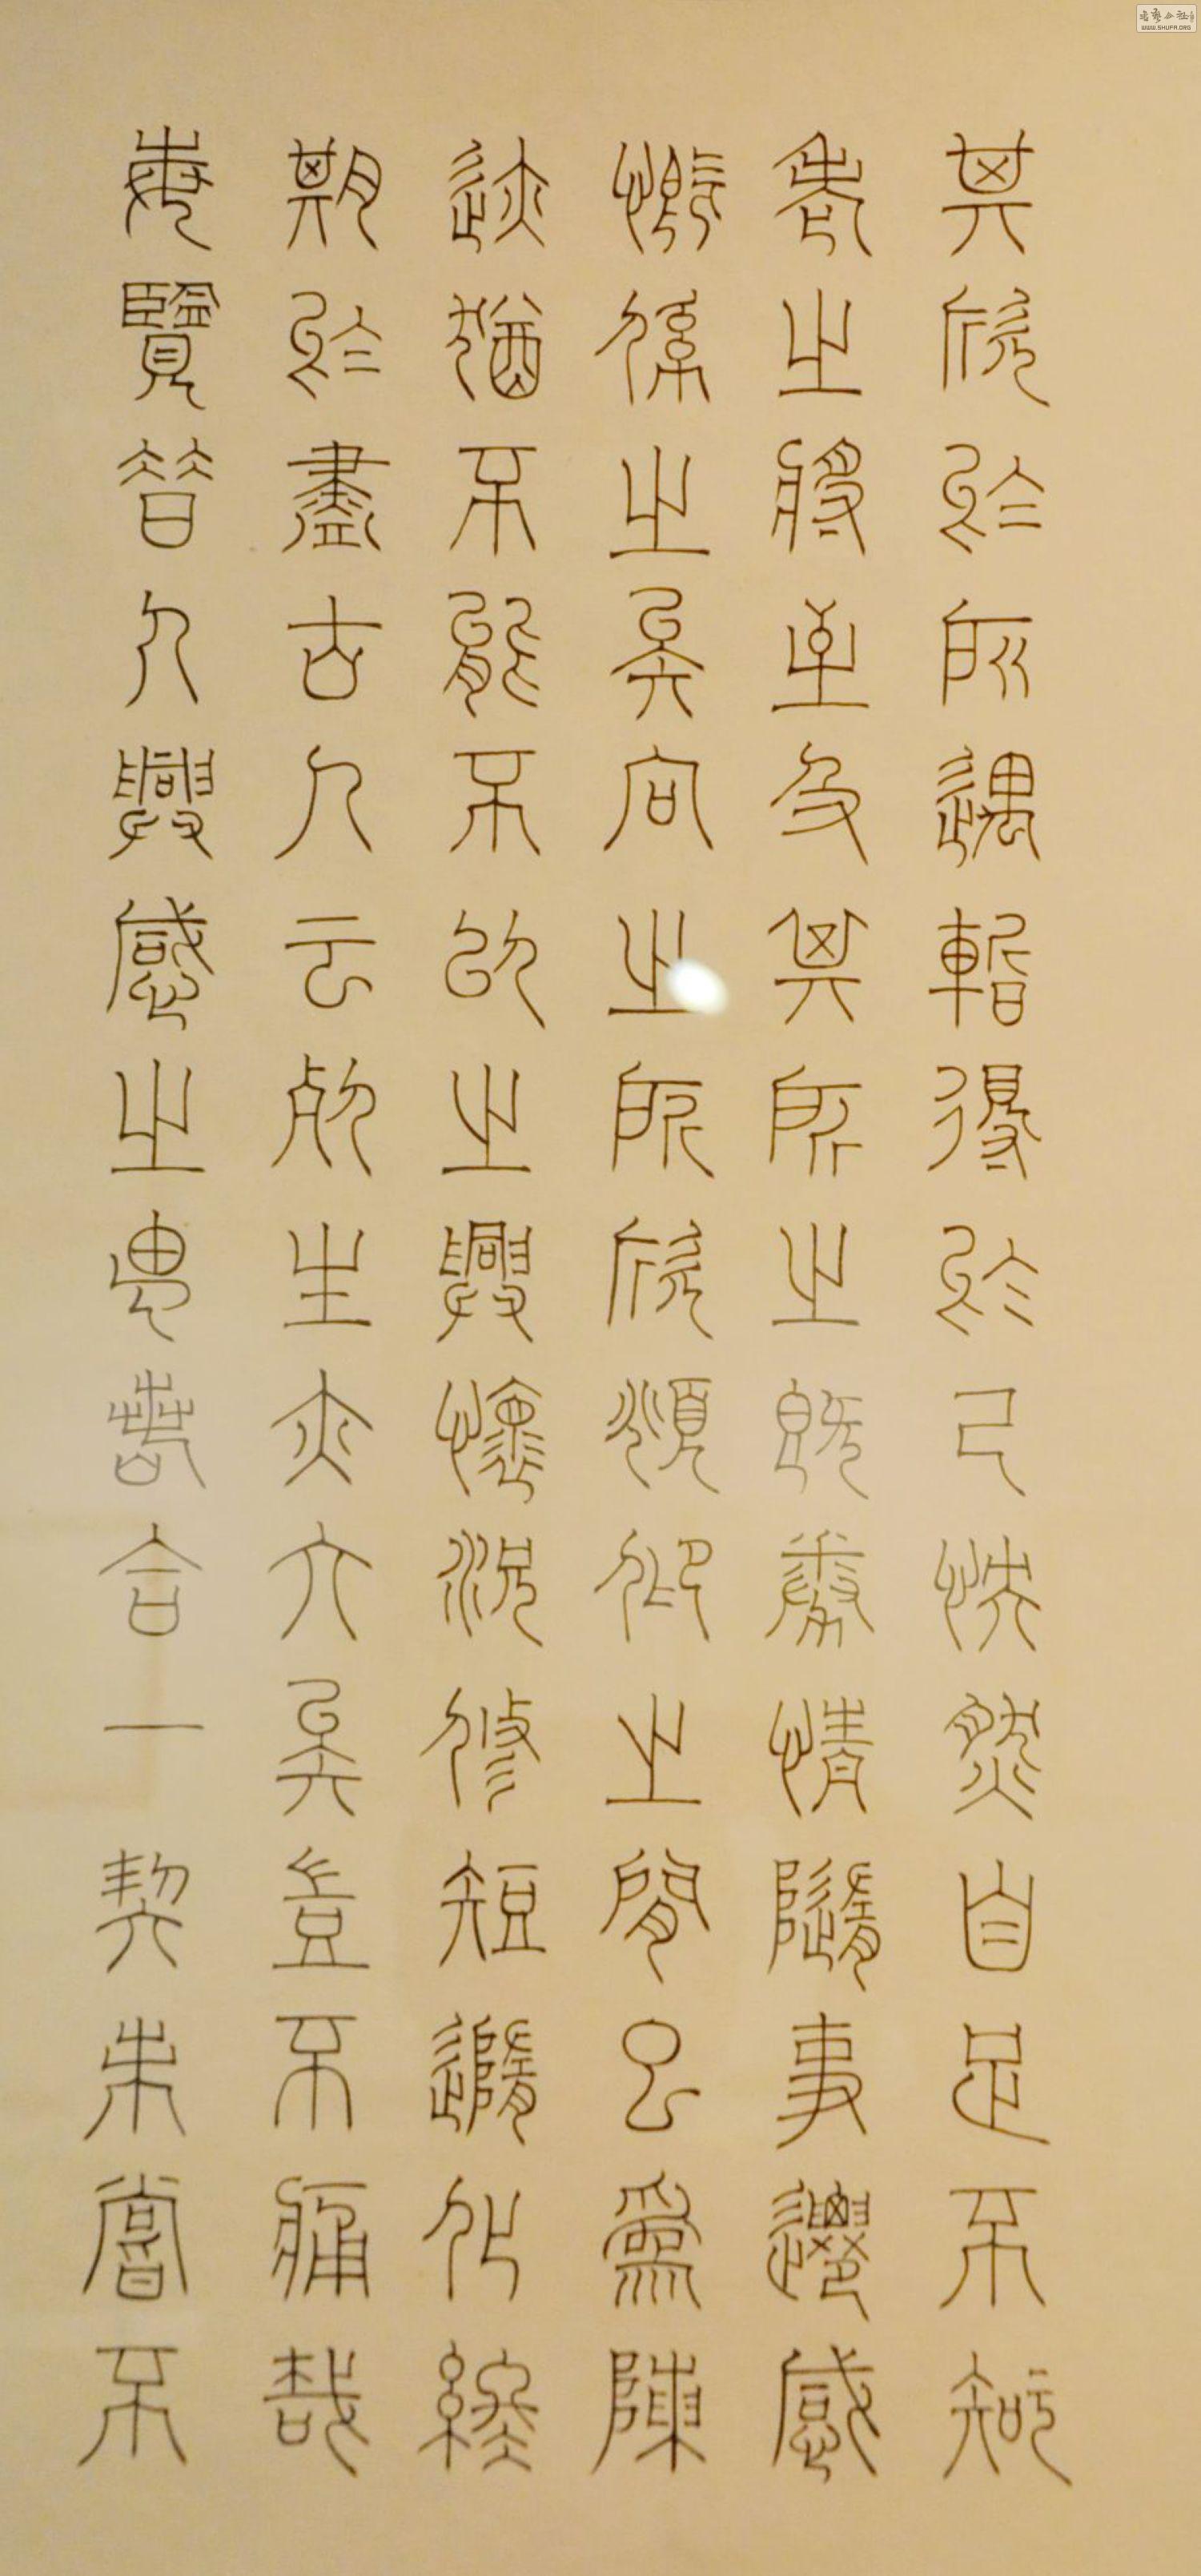 其欣於所遇暫得於己快然自足不知
老之將至及其所之既劵情隨事遷感
慨係之矣向之所欣頫仰之間以為陳
迹猶不能不以之興懷況修短隨化終
期於盡古人云死生亦大矣豈不痛哉
每覽昔人興感之由若合一契未嘗不
WWW.SHUFA.ORG